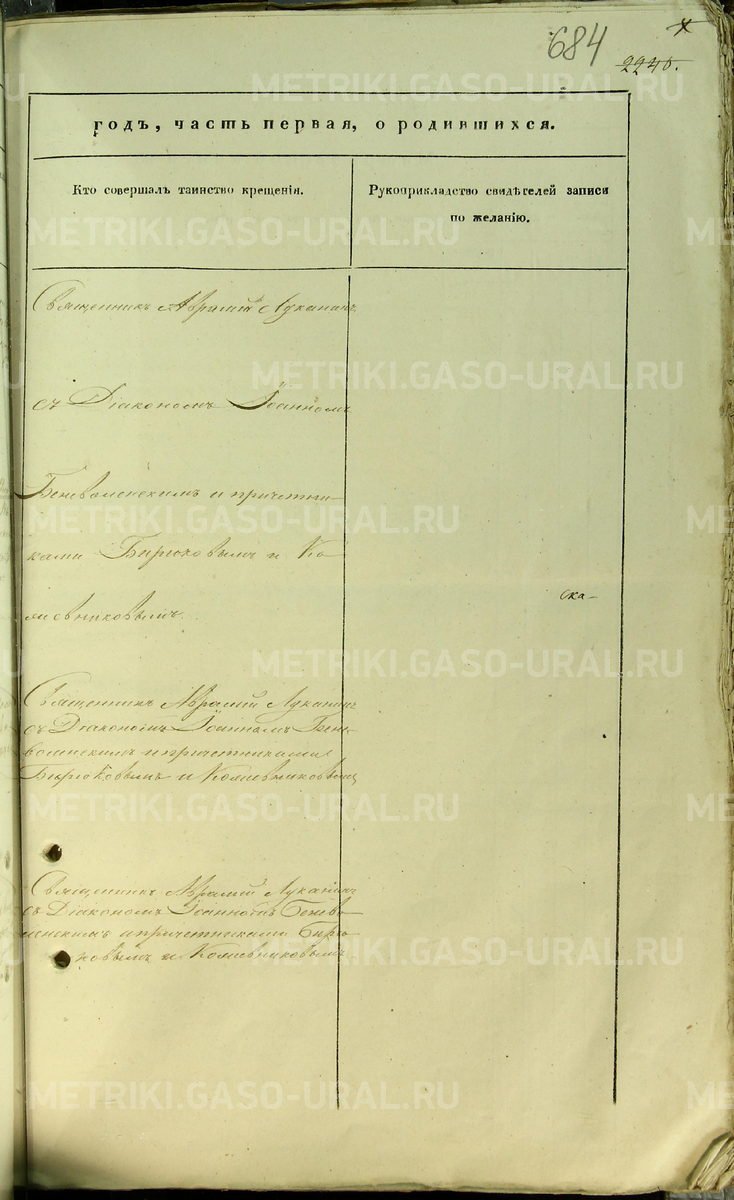 684
2240.
METRIKI.GASO-URAL.RU
годъ, часть первая, о родившихся.
Кто совершалъ таинство крещенія.
Рукоприкладство свидѣтелей записи
по желанію.
Священникъ Аврамій Луканинъ
съ Діакономъ Іоанномъ
Беневоленскимъ и причетни-
ками Бирюковымъ и Ко
жевниковымъ.
ска-
Священникъ Аврамій Луканинъ
съ Діакономъ Іоанномъ Бене-
воленскимъ и причетниками
Бирюковымъ и Кожевниковымъ
Священникъ Аврамій Луканинъ
съ Діакономъ Іоанномъ Беново-
ленскимъ и причетниками Бирю
ковымъ и Кожевниковымъ.